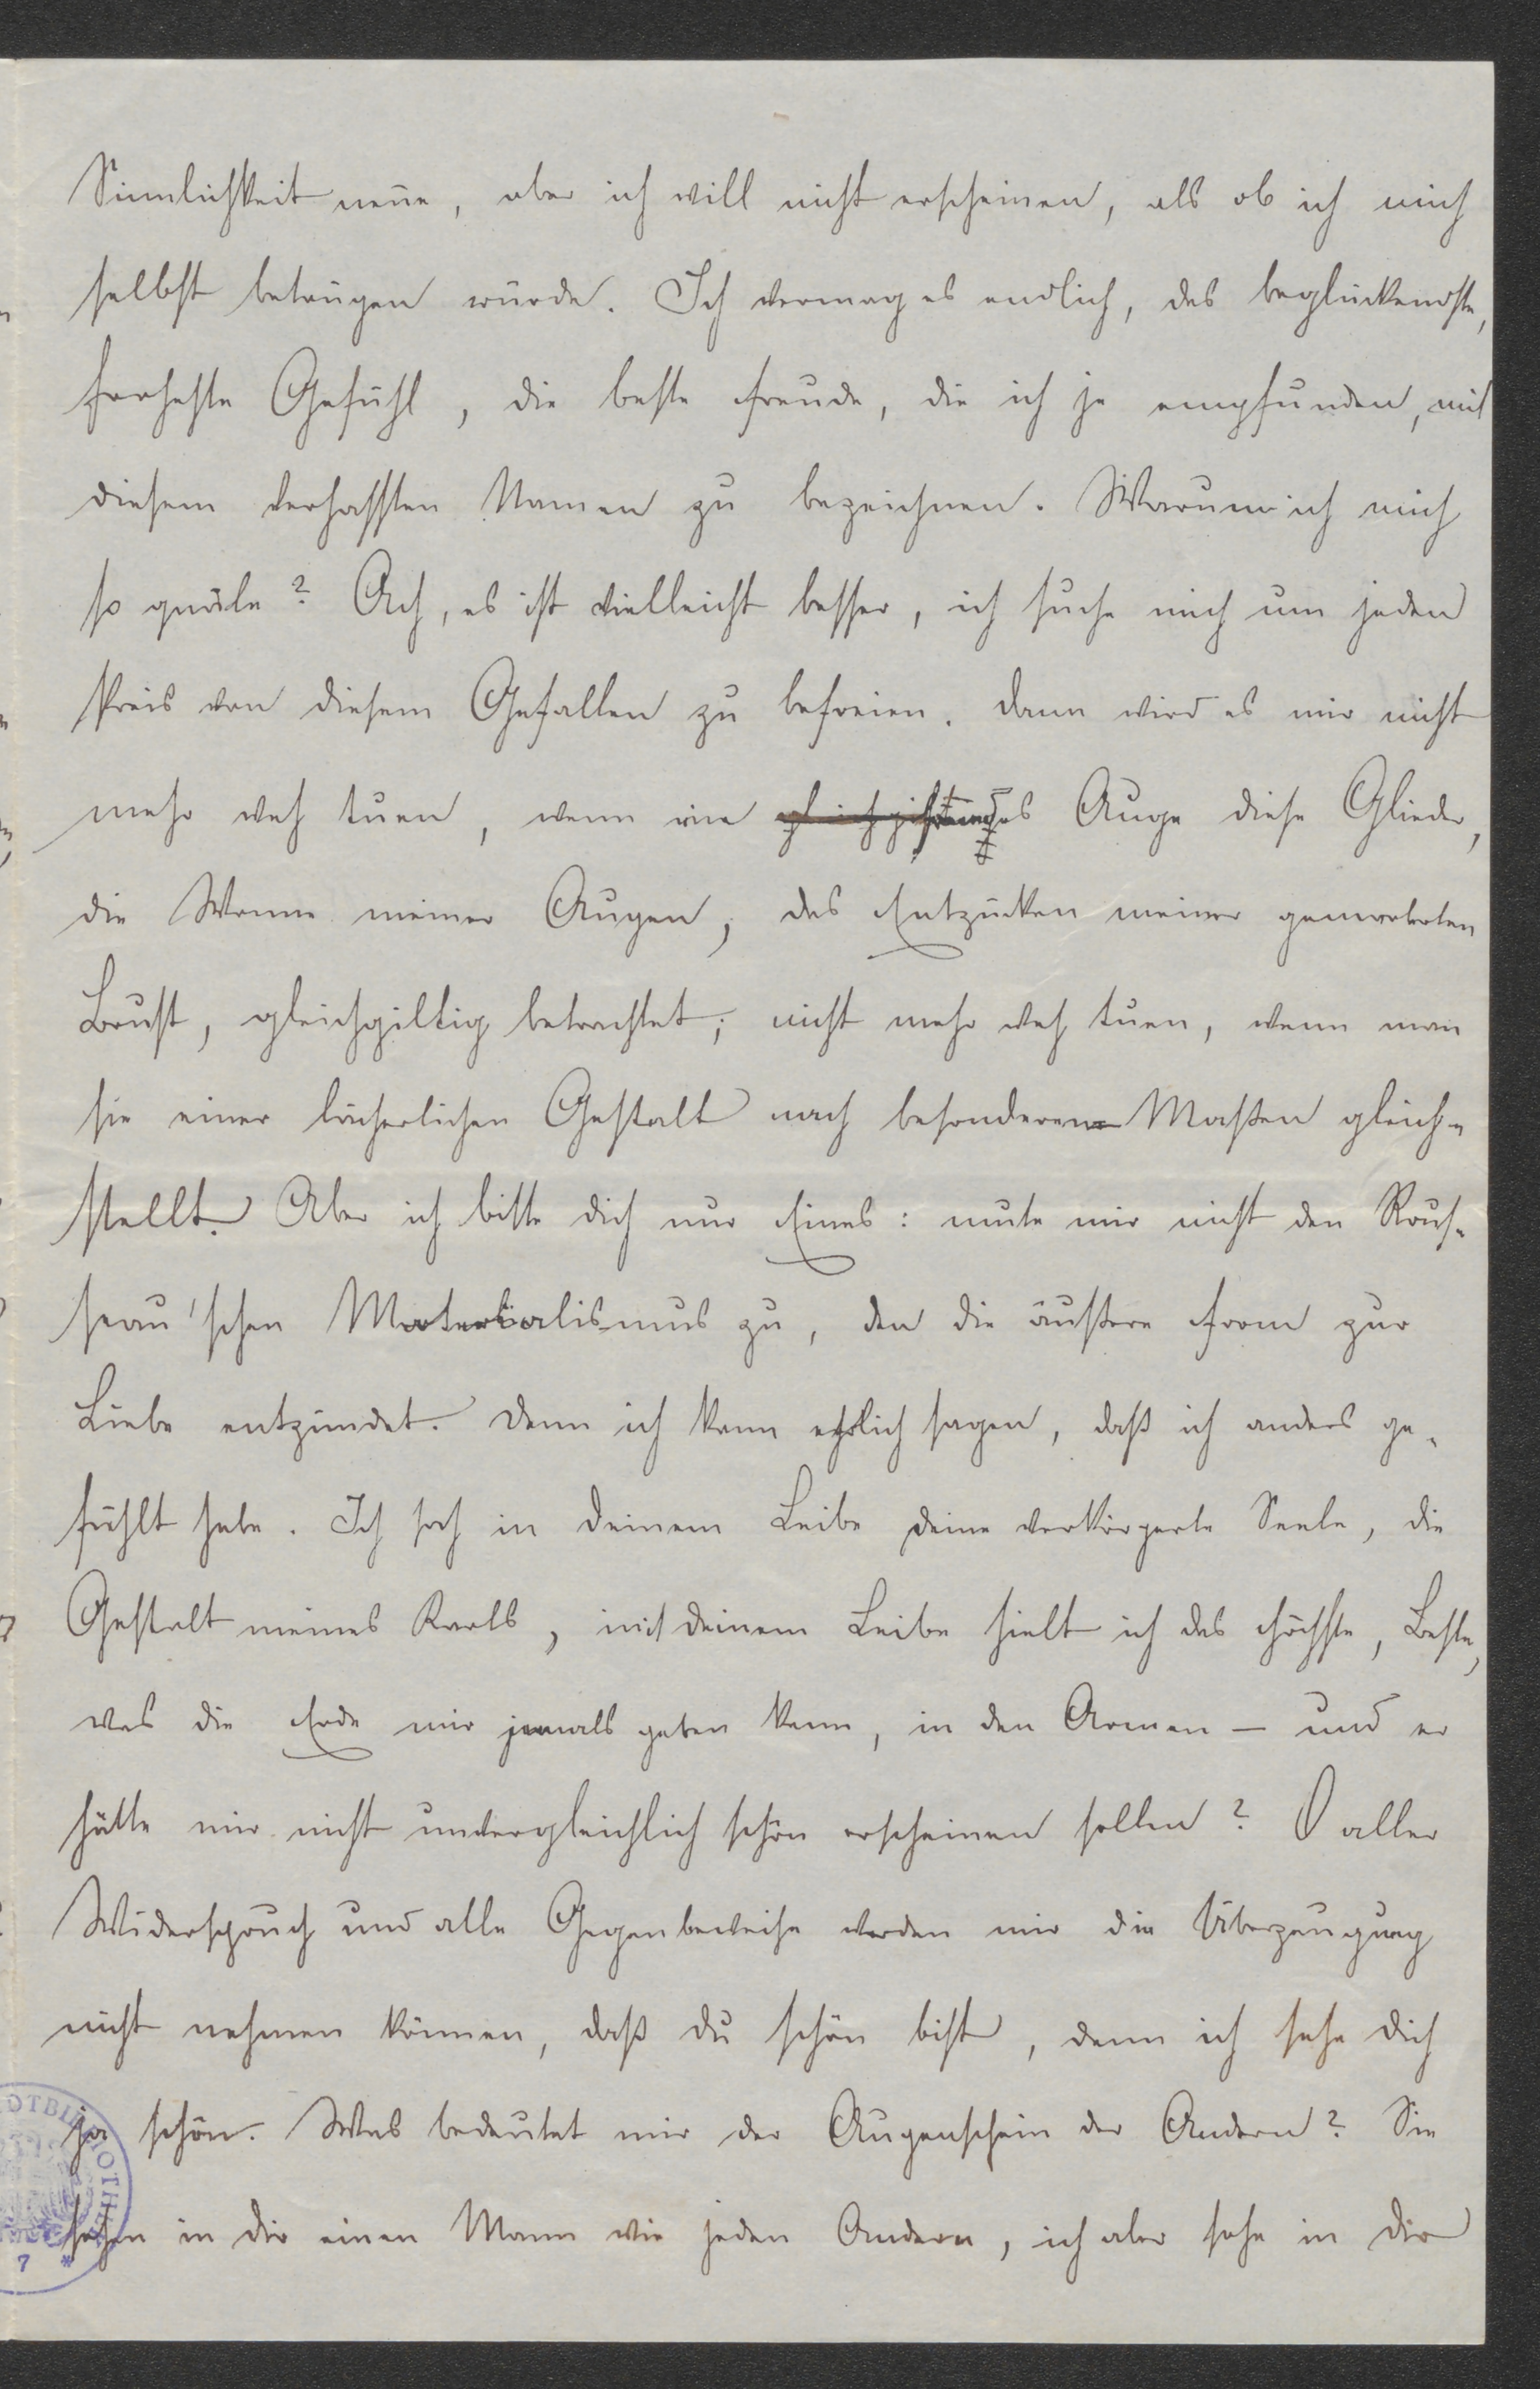 Sinnlichkeit nenne, aber ich will nicht erscheinen, als ob ich mich
selbst betrügen würde. Ich vermag es endlich, das beglückendste,
froheste Gefühl, die beste Freude, die ich je empfunden, mit
diesem verhassten Namen zu bezeichnen. Warum ich mich
so quäle? Ach, es ist vielleicht besser, ich suche mich um jeden
Preis von diesem Gefallen zu befreien. Dann wird es mir nicht
mehr weh tuen, wenn ein fremdes Auge diese Glieder,
die Wonne meiner Augen, das Entzücken meiner gemarterten
Brust, gleichgiltig betrachtet; nicht mehr weh tuen, wenn man
sie einer lächerlichen Gestalt nach besonderen Maßen gleich-
stellt. Aber ich bitte dich nur Eines: mute mir nicht den Rous-
seau'schen Materialismus zu, den die äußere Form zur
Liebe entzündet. Denn ich kann ehrlich sagen, daß ich anders ge-
fühlt habe. Ich sah in deinem Leibe deine verkörperte Seele, die
Gestalt meines Karls, mit deinem Leibe hielt ich das Höchste, Beste,
was die Erde mir jemals geben kann, in den Armen – und er
hätte mir nicht unvergleichlich schön erscheinen sollen? O aller
Widerspruch und alle Gegenbeweise werden mir die Überzeugung
nicht nehmen können, daß du schön bist, denn ich sehe dich
ja schön. Was bedeutet mir der Augenschein der Andern? Sie
sehen in dir einen Mann wie jeden Andern, ich aber sehe in dir